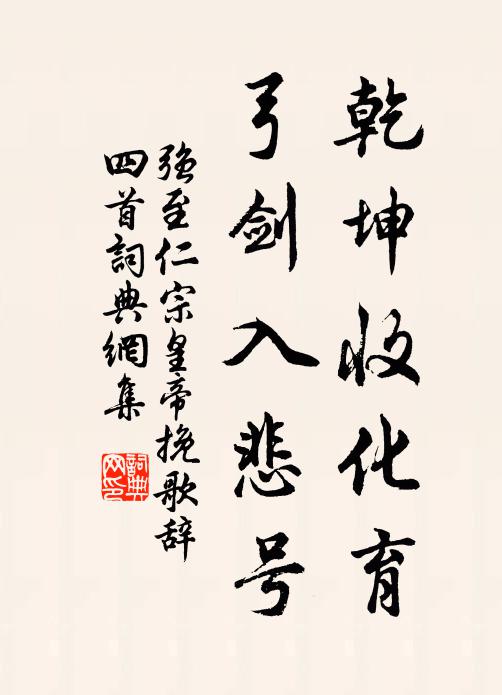 乾坤收化育
弓剑入悲号
强至仁宗皇帝挽歌辞
四首詞典網集
詞典网印